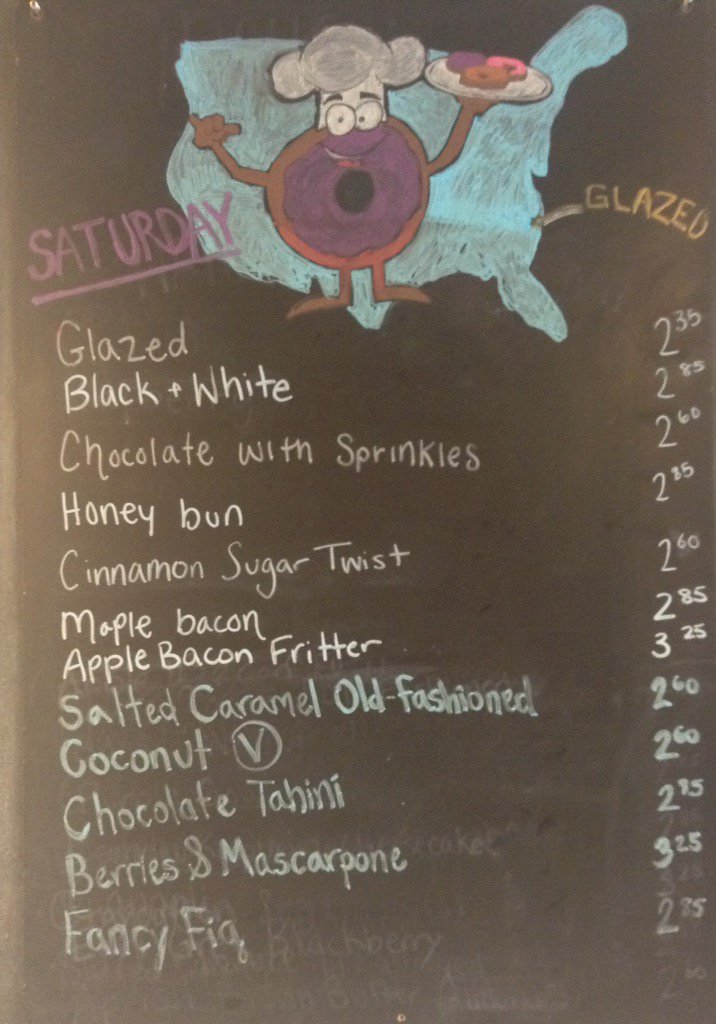 GLAZED
SATURDAY
Glazed 2 35
Black + White 2 85
Chocolate with Sprinkles 2 60
Honey bun 2 85
Cinnamon Sugar Twist 2 60
Maple bacon 2 85
Apple Bacon Fritter 3 25
Salted Caramel Old-fashioned 2 60
Coconut V 2 60
Chocolate Tahini 2 85
Berries & Mascarpone 3 25
Fancy Fig 2 85
Blackberry